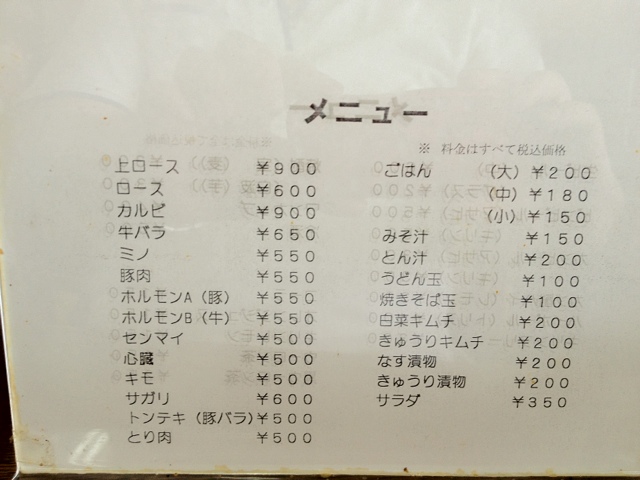 メニュー
※ 料金はすべて税込価格
上ロース ￥９００
ロース ￥６００
カルビ ￥９００
牛バラ ￥６５０
ミノ ￥５５０
豚肉 ￥５５０
ホルモンＡ（豚） ￥５５０
ホルモンＢ（牛） ￥５５０
センマイ ￥５００
心臓 ￥５００
キモ ￥５００
サガリ ￥６００
トンテキ（豚バラ）￥５００
とり肉 ￥５００
ごはん （大）￥２００
（中）￥１８０
（小）￥１５０
みそ汁 ￥１５０
とん汁 ￥２００
うどん玉 ￥１００
焼きそば玉 ￥１００
白菜キムチ ￥２００
きゅうりキムチ ￥２００
なす漬物 ￥２００
きゅうり漬物 ￥２００
サラダ ￥３５０